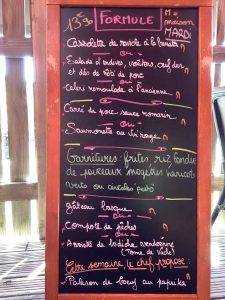 13€90 FORMULE
maison
MARDI
Cassolette de ravioles à la tomate
ou
Salade d'endives, croûtons, œuf dur
et dés de rôti de porc
ou
Céleri rémoulade à l'ancienne
Carré de porc sauce romarin
ou
Saumonette au vinaigre
Garnitures: frites, riz, fondue
de poireaux mogettes haricots
verts ou
Gâteau basque
ou
Compote de pêches
ou
Assiette de
(Tome de Vache)
Cette semaine le chef propose:
Paleron de bœuf au paprika